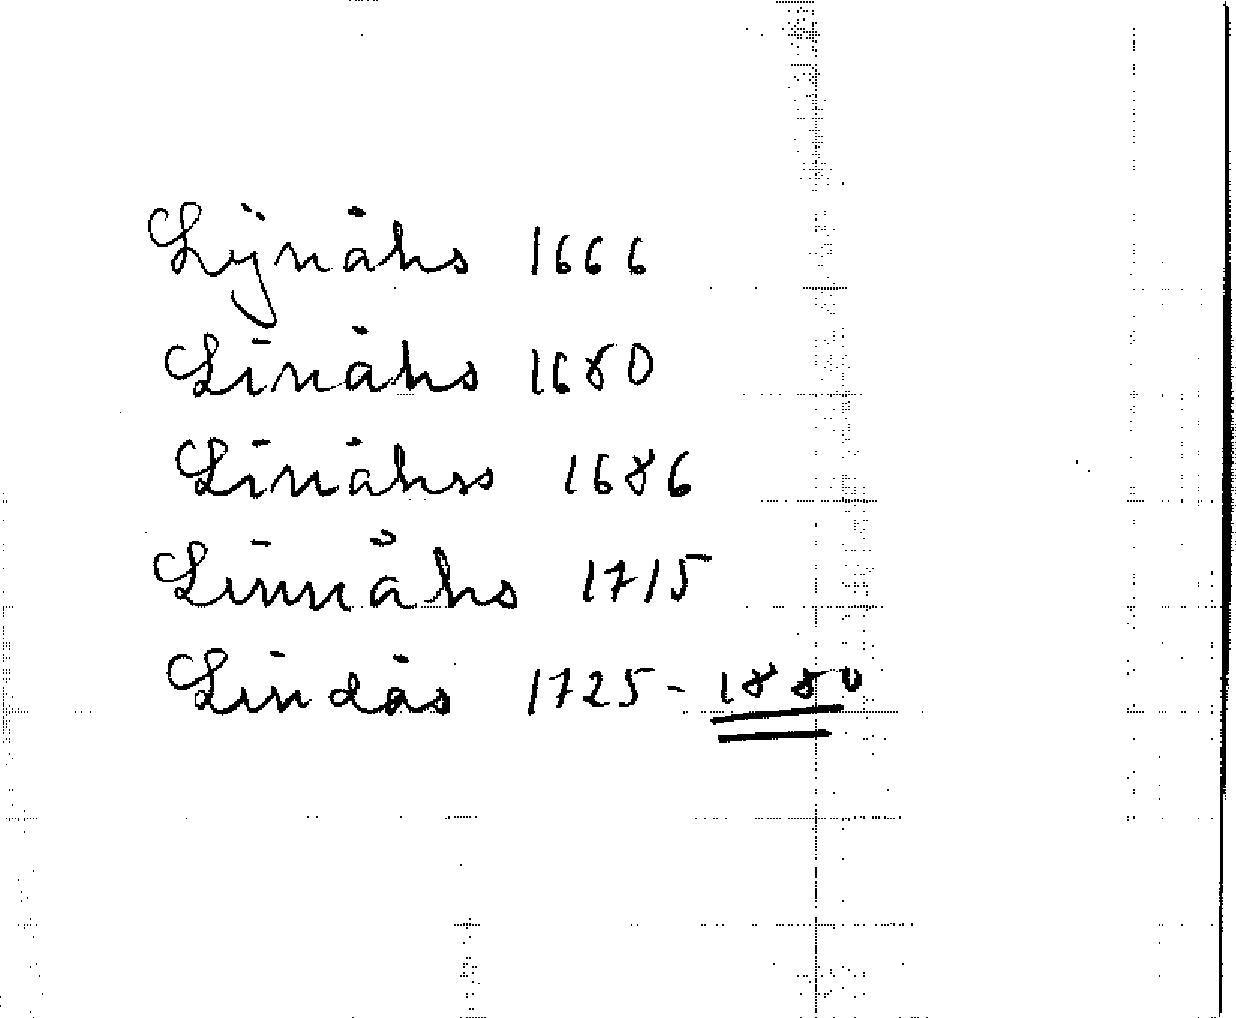 Lÿnåhs 1666
Linåhs 1680
Linåhss 1686
Linnåhs 1715
Lindås 1725 - 1880